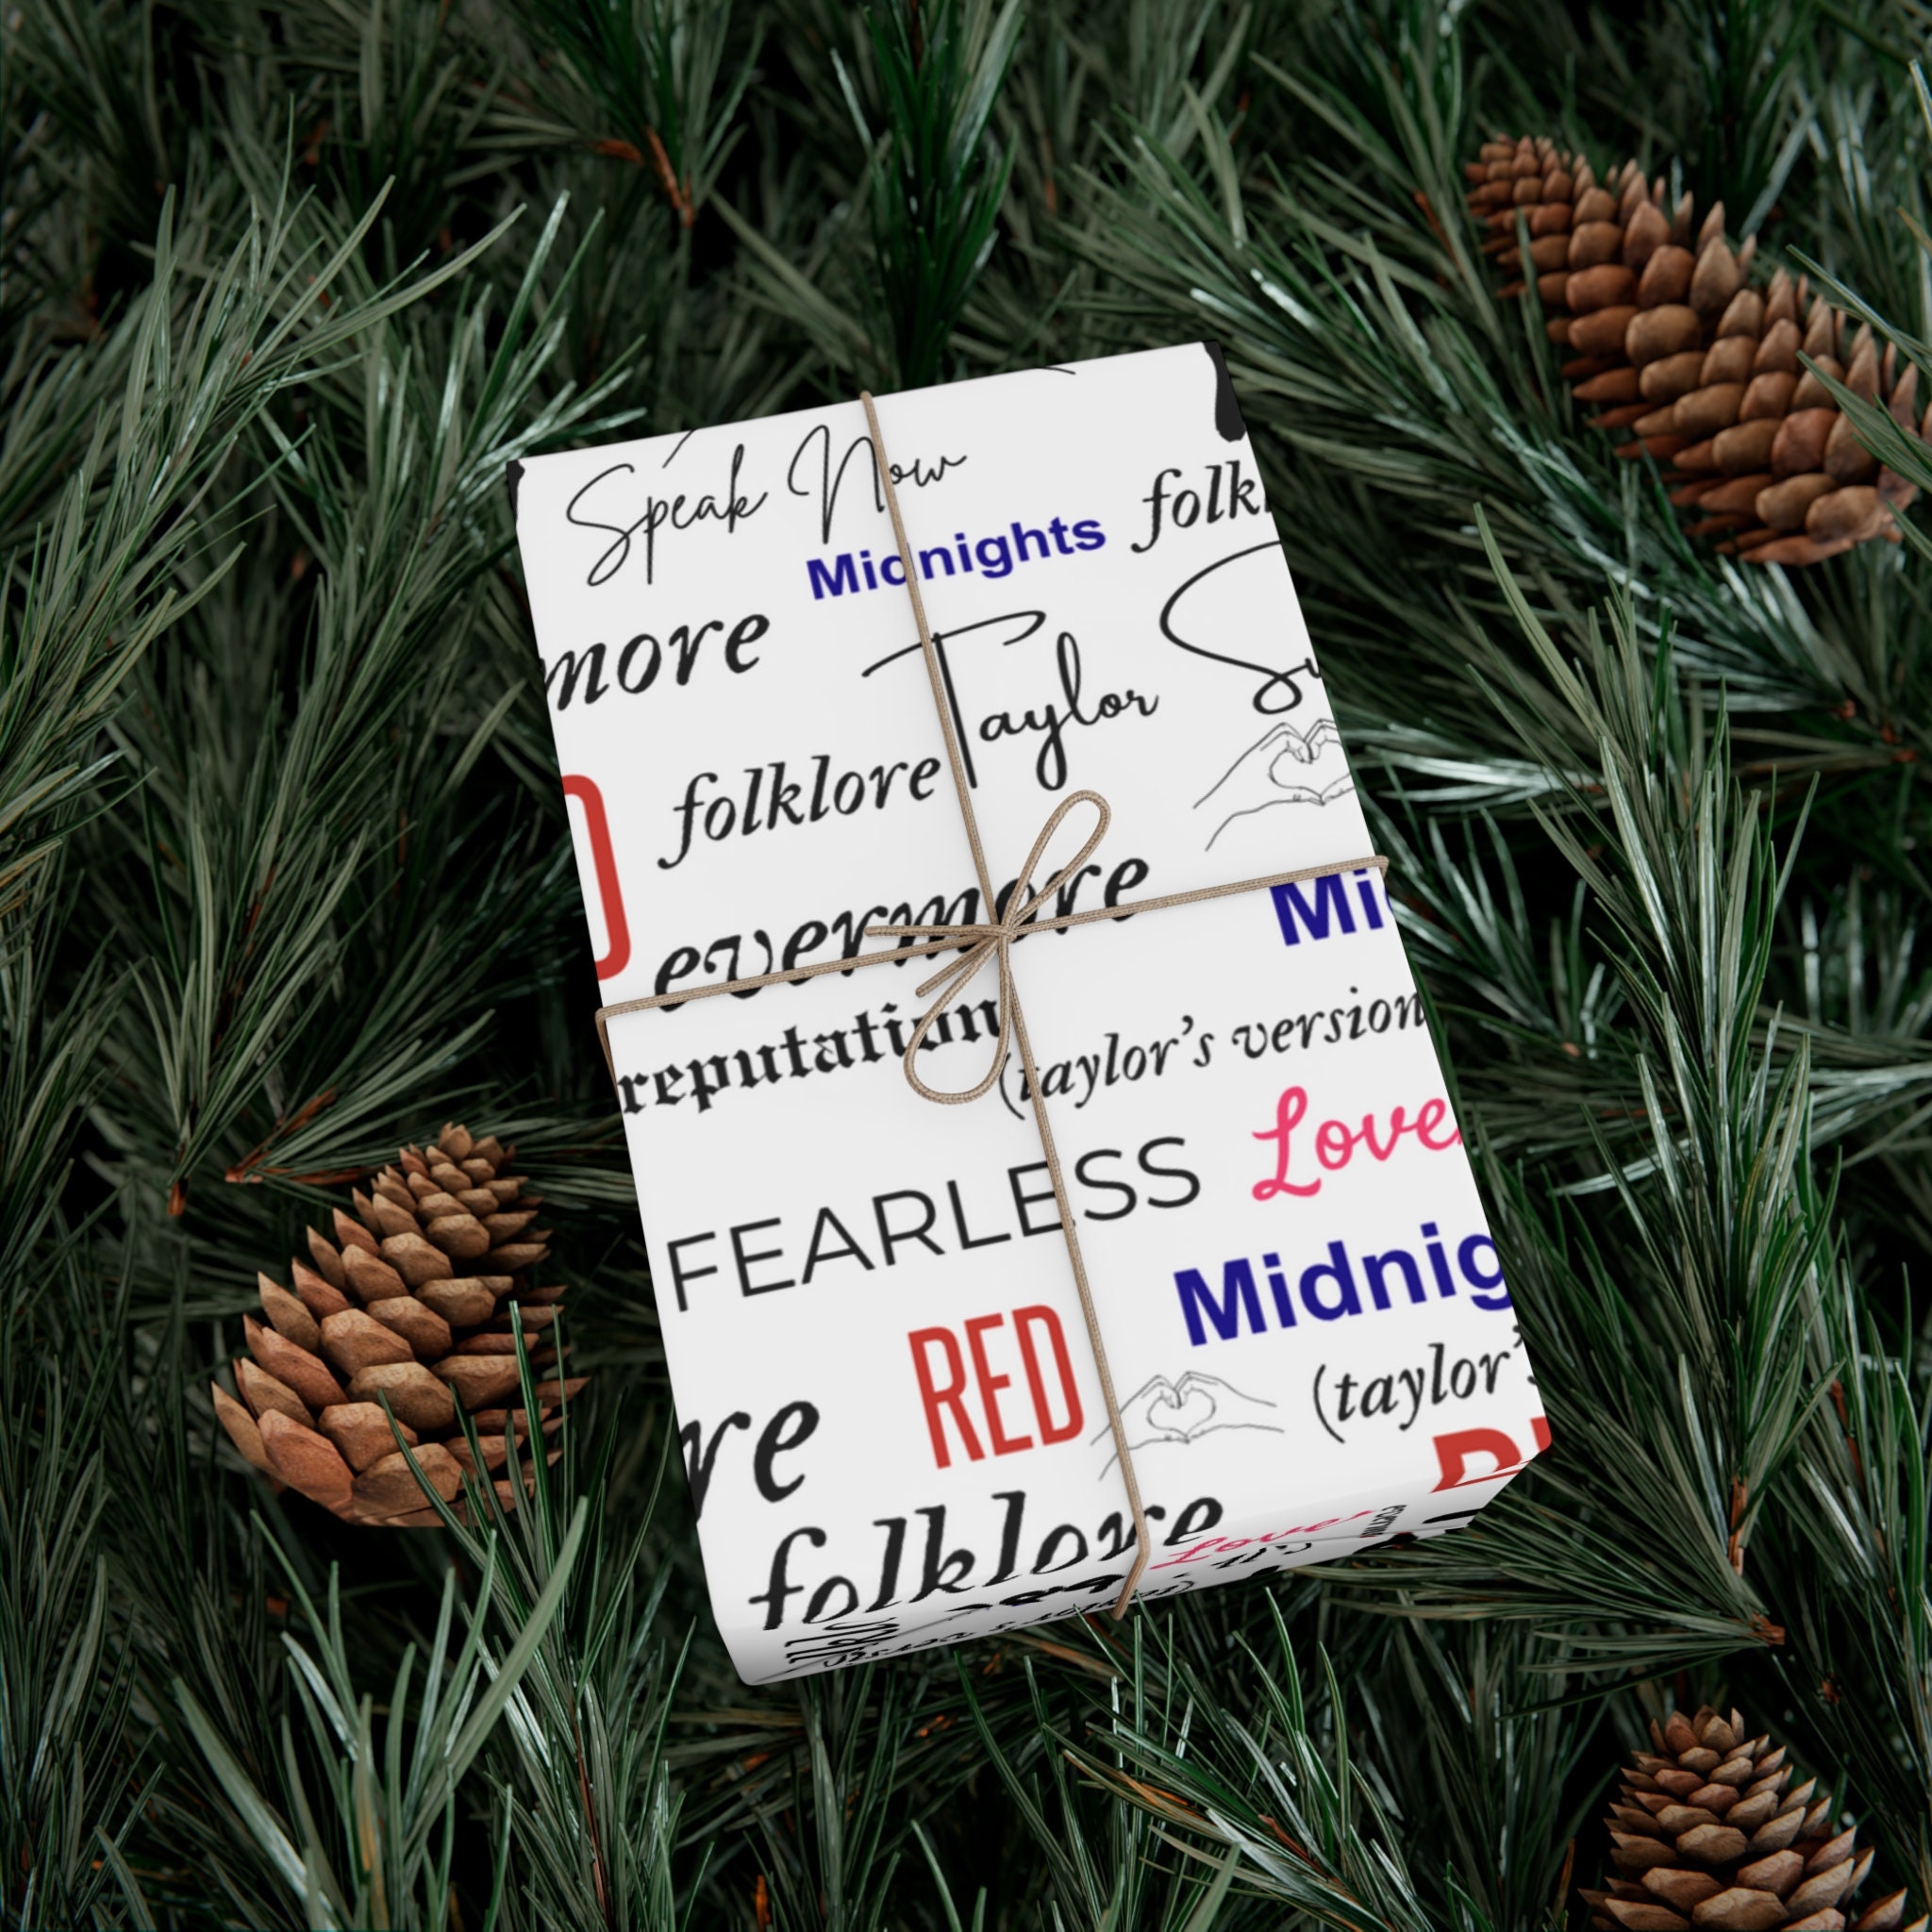 Speak Now
Midnights folk
more
Taylor S
folklore
evermore
Mi
reputation
(taylor's version
FEARLESS Love
Midnig
RED
(taylor'
re
folklore
Lover